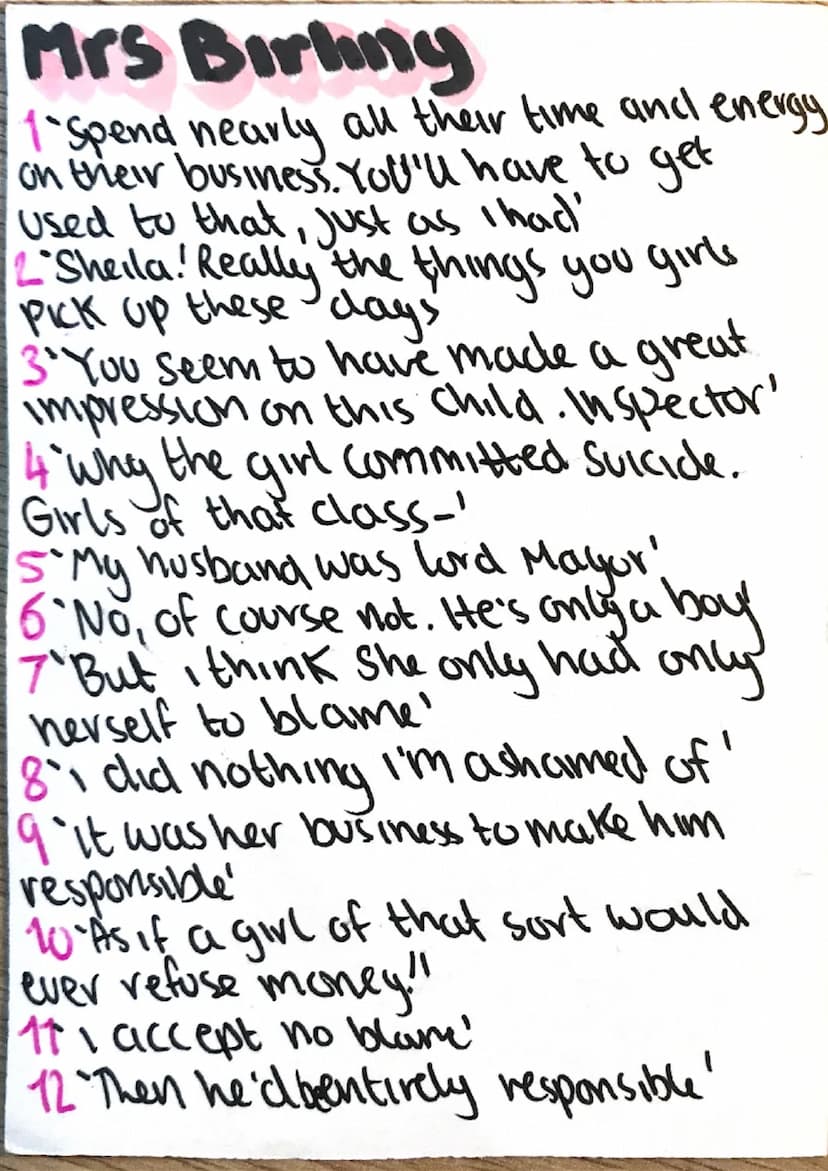 Mrs Birling
1 'Spend nearly all their time and energy
on their business. You'll have to get
used to that, just as i had'
2 'Sheila! Really the things you girls
pick up these days
3 'You seem to have made a great
impression on this child. Inspector'
4 'Why the girl committed suicide.
Girls of that class-'
5 'My husband was lord Mayor'
6 'No, of course not. He's only a boy'
7 'But i think She only had only
herself to blame'
8 'i did nothing i'm ashamed of'
9 'it was her business to make him
responsible'
10 'As if a girl of that sort would
ever refuse money!'
11 i accept no blame'
12 'Then he'd be entirely responsible'